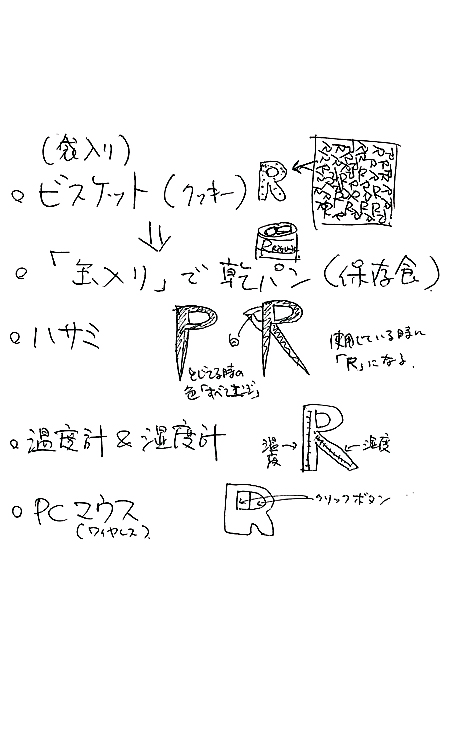 (袋入り)
○ ビスケット(クッキー) R
○ 「缶入り」で乾パン(保存食)
○ ハサミ
とじてる時の
使用している時に
「R」になる。
○ 温度計 & 湿度計 温度→ ←湿度
○ PCマウス クリックボタン
(ワイヤレス)